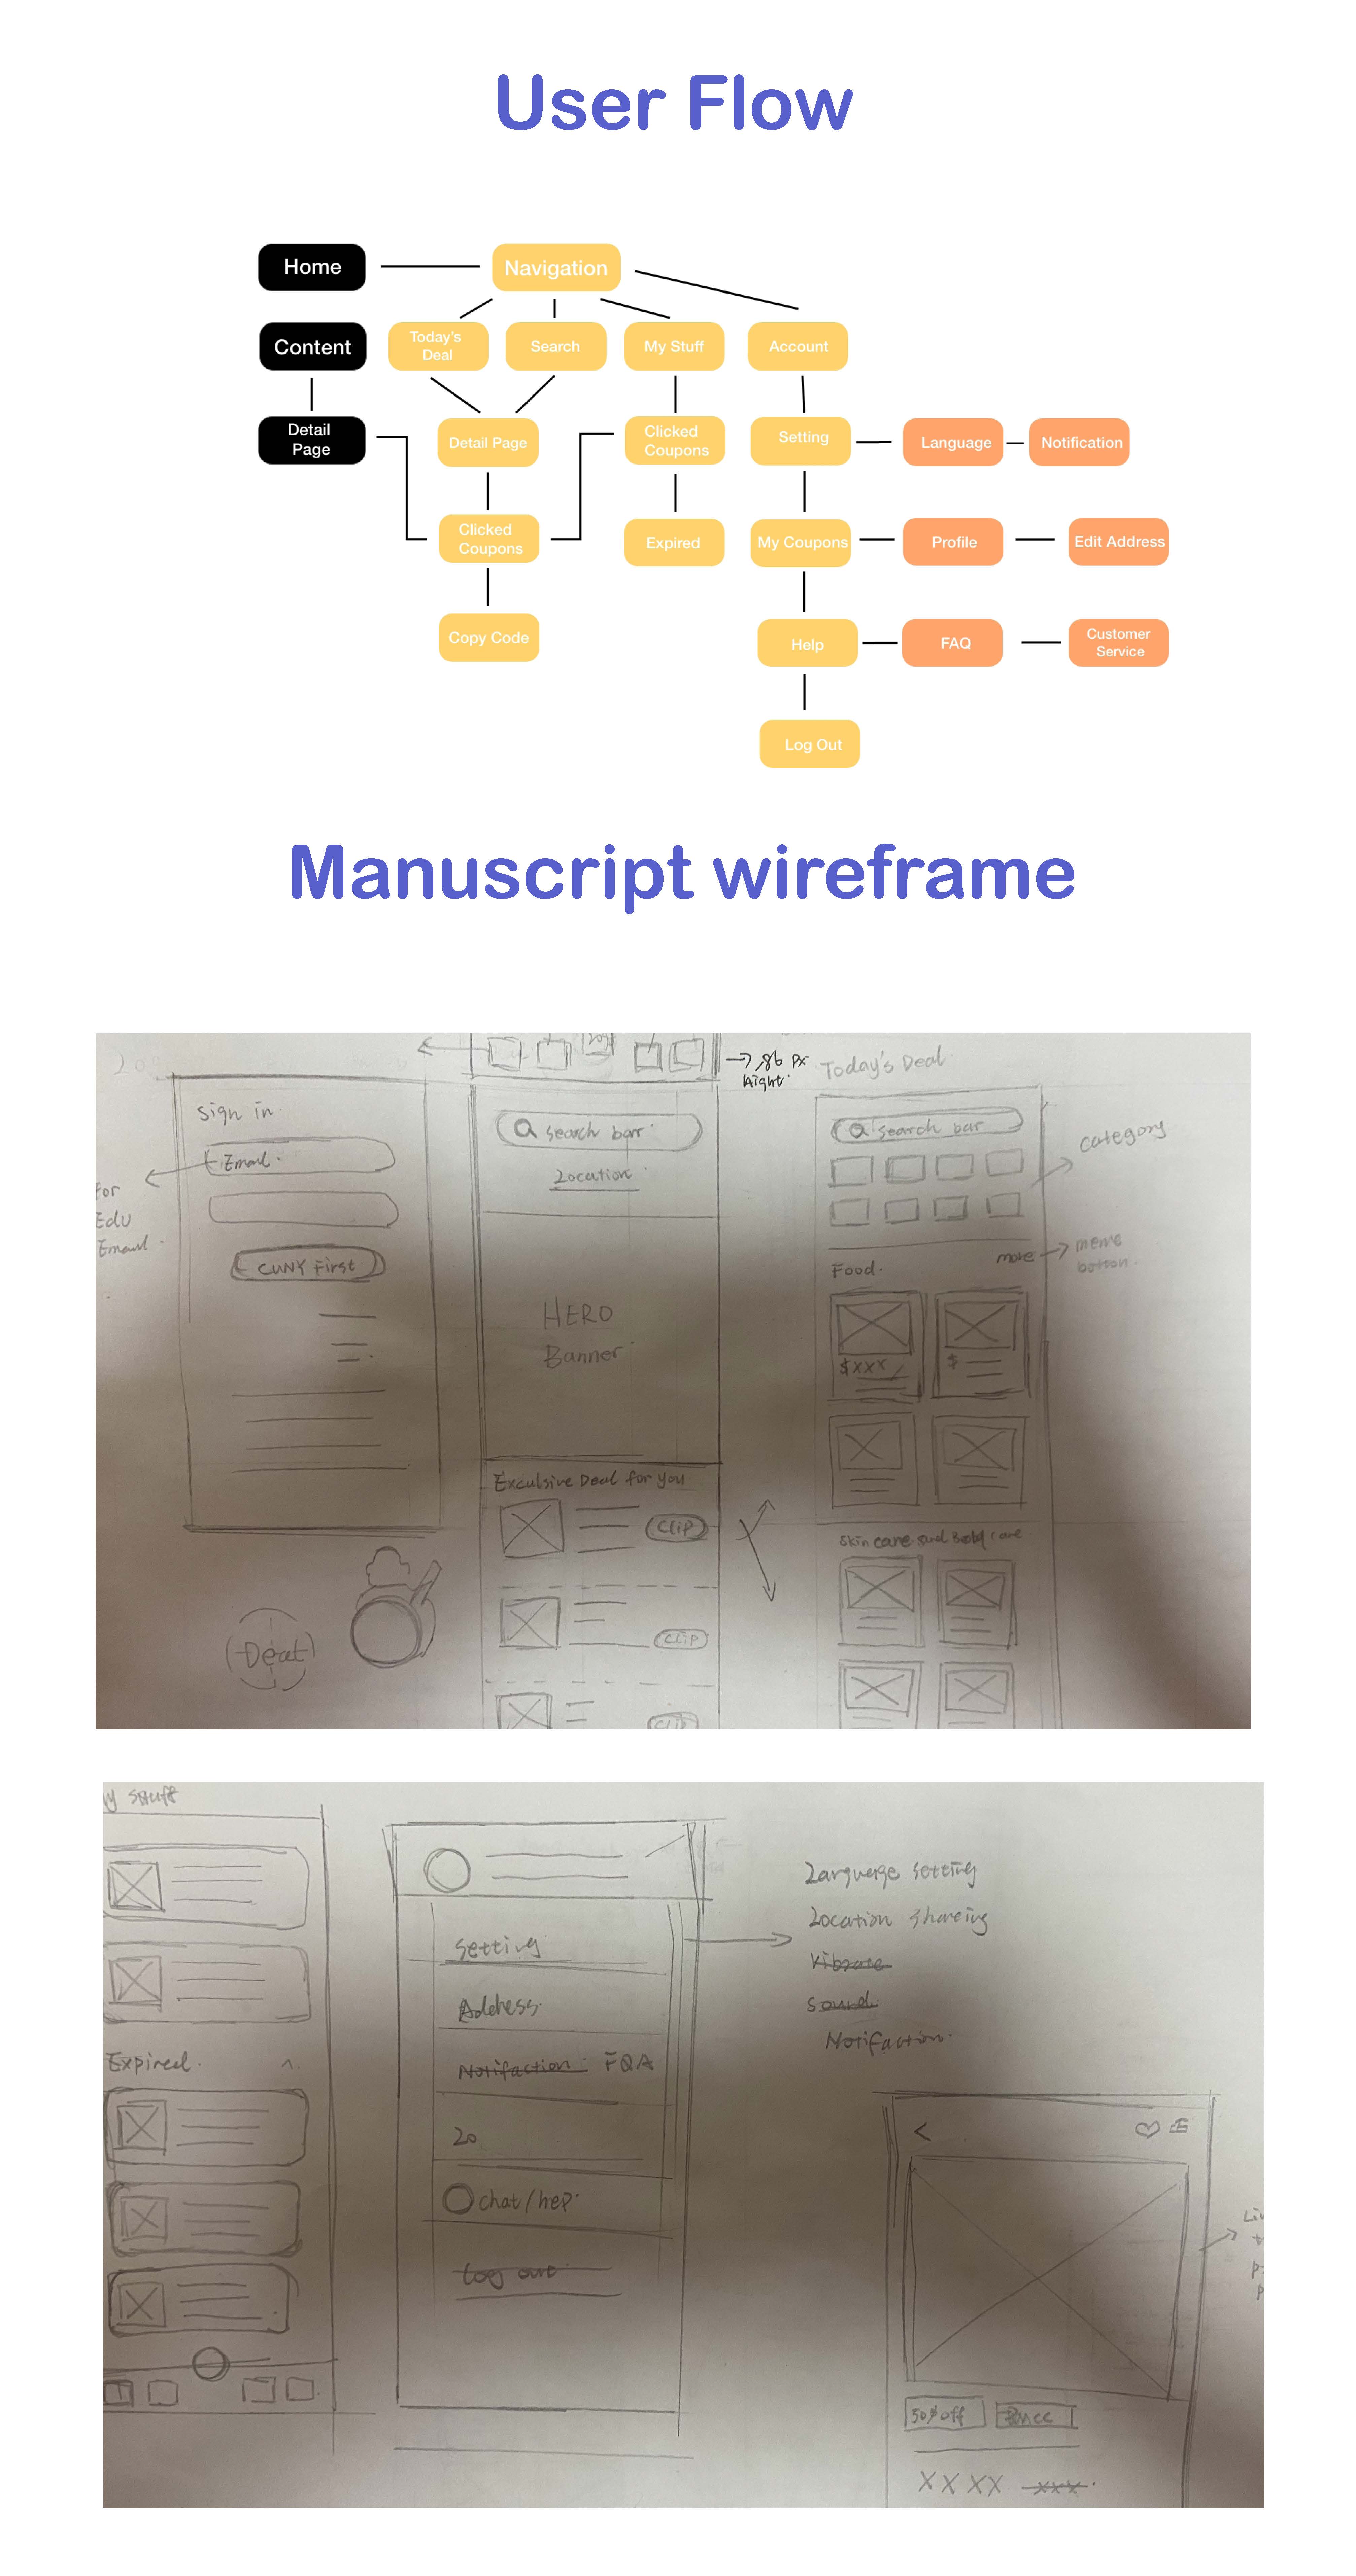 User Flow
Home
Navigation
Content
Today's
Deal
Search
My Stuff
Account
Detail
Page
Detail Page
Clicked
Coupons
Setting
Language
Notification
Clicked
Coupons
Expired
My Coupons
Profile
Edit Address
Copy Code
Help
FAQ
Customer
Service
Log Out
Manuscript wireframe
86 px
hight
Today's Deal
Sign in
Email
For
Edu
Email
CUNY First
Search barr
Location
HERO
Banner
Exculsive Deal for you
CLIP
CLIP
CLIP
Search bar
category
Food
more
$xxx
$
Skin care and Body care
Deal
y stuff
Expired
Setting
Address
Notifaction FQA
20
chat/hep
Log out
Language setting
Location sharing
Vibrate
Sound
Notifaction
<
50% off
XXXX xxx